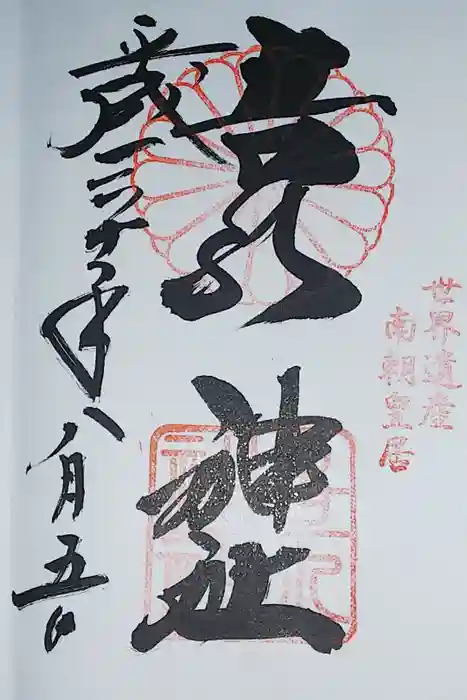 世界遺産
南朝皇居
吉水神社
平成三十年八月五日